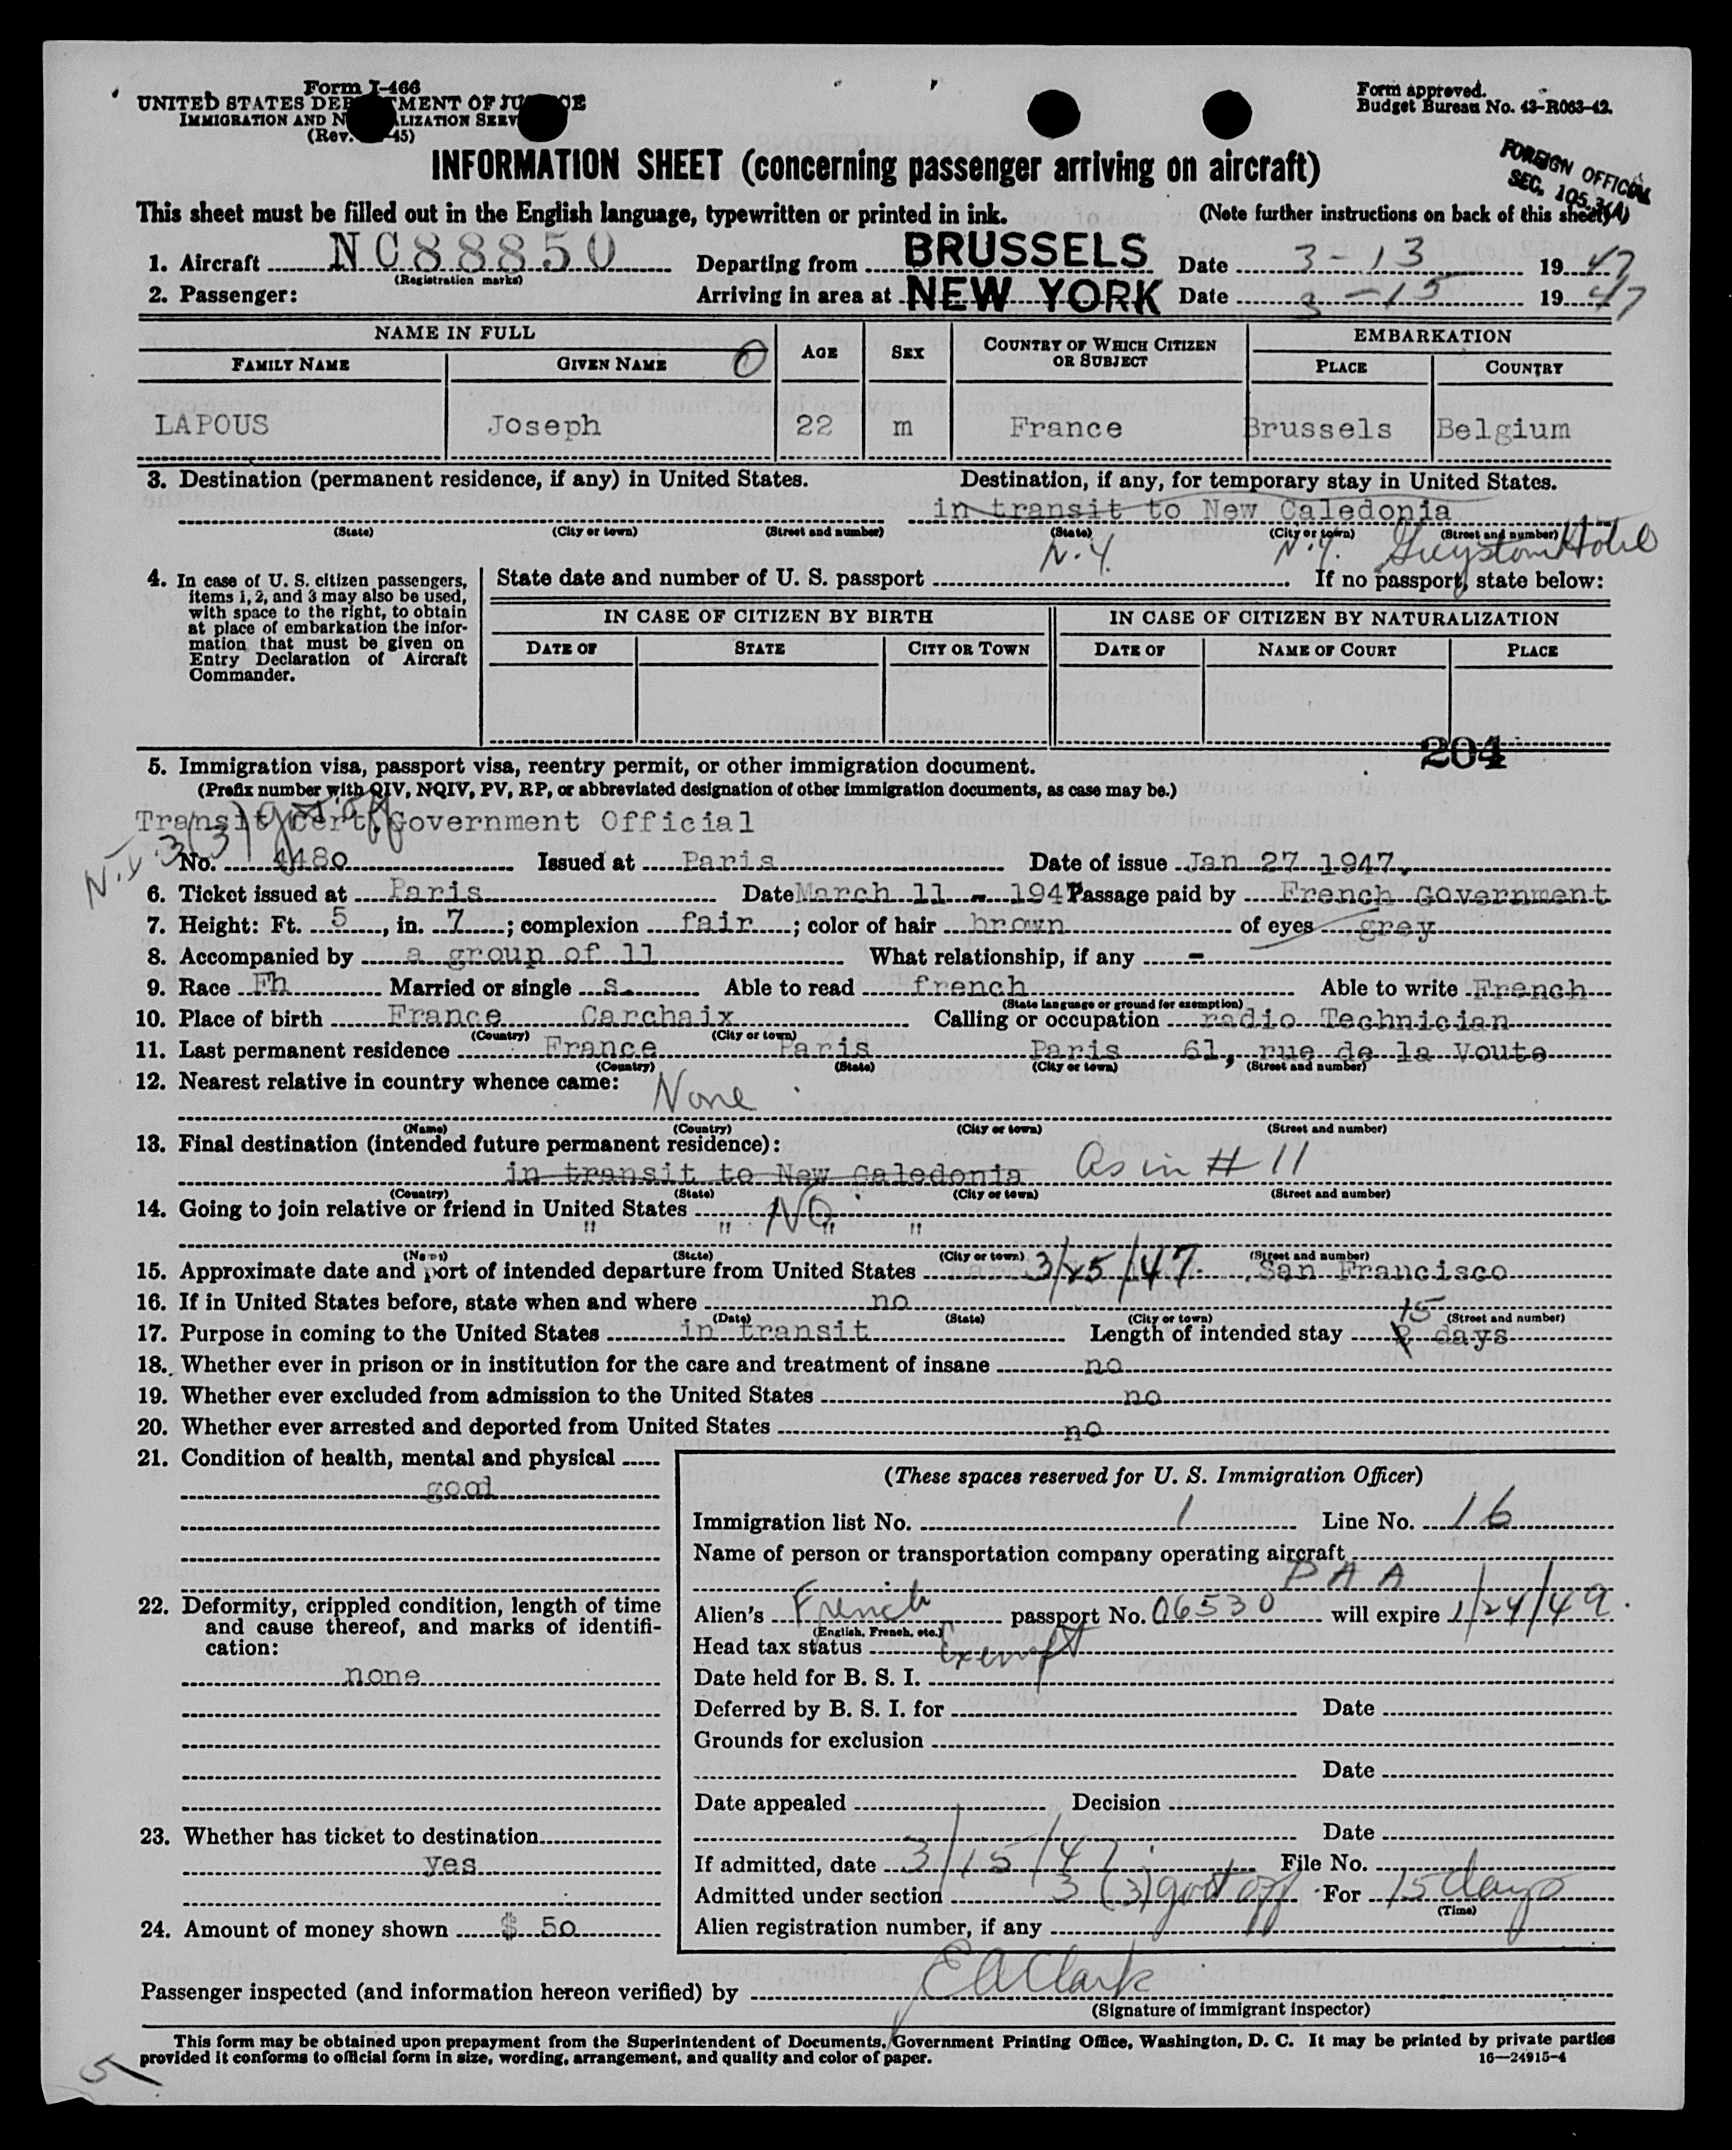 Form I-466
UNITED STATES DEP TMENT OF JU CE
IMMIGRATION AND N LIZATION SERV
(Rev. 45)
Form approved.
Budget Bureau No. 43-R063-42.
INFORMATION SHEET (concerning passenger arriving on aircraft)
FOREIGN OFFICIAL
SEC. 105.3(A)
This sheet must be filled out in the English language, typewritten or printed in ink. (Note further instructions on back of this sheet)
1. Aircraft NC88850 Departing from BRUSSELS Date 3-13 1947
(Registration marks)
2. Passenger: Arriving in area at NEW YORK Date 3-15 1947
NAME IN FULL AGE SEX COUNTRY OF WHICH CITIZEN OR SUBJECT EMBARKATION
FAMILY NAME GIVEN NAME PLACE COUNTRY
LAPOUS Joseph 22 m France Brussels Belgium
3. Destination (permanent residence, if any) in United States. Destination, if any, for temporary stay in United States.
in transit to New Caledonia
(State) (City or town) (Street and number) (State) (City or town) (Street and number)
N.Y. N.Y. Greystone Hotel
4. In case of U. S. citizen passengers, items 1, 2, and 3 may also be used, with space to the right, to obtain at place of embarkation the information that must be given on Entry Declaration of Aircraft Commander.
State date and number of U. S. passport If no passport, state below:
IN CASE OF CITIZEN BY BIRTH IN CASE OF CITIZEN BY NATURALIZATION
DATE OF STATE CITY OR TOWN DATE OF NAME OF COURT PLACE
204
5. Immigration visa, passport visa, reentry permit, or other immigration document.
(Prefix number with QIV, NQIV, PV, RP, or abbreviated designation of other immigration documents, as case may be.)
Transit Cert. Government Official
N.Y. 3(3) govt off
No. 4480 Issued at Paris Date of issue Jan 27 1947,
6. Ticket issued at Paris Date March 11 - 1947 Passage paid by French Government
7. Height: Ft. 5, in. 7; complexion fair; color of hair brown of eyes grey
8. Accompanied by a group of 11 What relationship, if any -
9. Race Fh Married or single s. Able to read french Able to write French
(State language or ground for exemption)
10. Place of birth France Carchaix Calling or occupation radio Technician
(Country) (City or town)
11. Last permanent residence France Paris Paris 61, rue de la Voute
(Country) (State) (City or town) (Street and number)
12. Nearest relative in country whence came: None
(Name) (Country) (City or town) (Street and number)
13. Final destination (intended future permanent residence):
in transit to New Caledonia As in # 11
(Country) (State) (City or town) (Street and number)
14. Going to join relative or friend in United States NO
" " " "
(Name) (State) (City or town) (Street and number)
15. Approximate date and port of intended departure from United States 3/25/47 San Francisco
16. If in United States before, state when and where no
(Date) (State) (City or town) (Street and number)
17. Purpose in coming to the United States in transit Length of intended stay 15 days
18. Whether ever in prison or in institution for the care and treatment of insane no
19. Whether ever excluded from admission to the United States no
20. Whether ever arrested and deported from United States no
21. Condition of health, mental and physical
good
22. Deformity, crippled condition, length of time and cause thereof, and marks of identification:
none
23. Whether has ticket to destination
yes
24. Amount of money shown $ 50
(These spaces reserved for U. S. Immigration Officer)
Immigration list No. 1 Line No. 16
Name of person or transportation company operating aircraft
PAA
Alien's French passport No. 06530 will expire 1/24/49.
(English, French, etc.)
Head tax status Exempt
Date held for B. S. I.
Deferred by B. S. I. for Date
Grounds for exclusion
Date
Date appealed Decision
Date
If admitted, date 3/15/47 File No.
Admitted under section 3 (3) govt off For 15 days
(Time)
Alien registration number, if any
Passenger inspected (and information hereon verified) by E A Clark
(Signature of immigrant inspector)
This form may be obtained upon prepayment from the Superintendent of Documents, Government Printing Office, Washington, D. C. It may be printed by private parties
provided it conforms to official form in size, wording, arrangement, and quality and color of paper. 16—24915-4